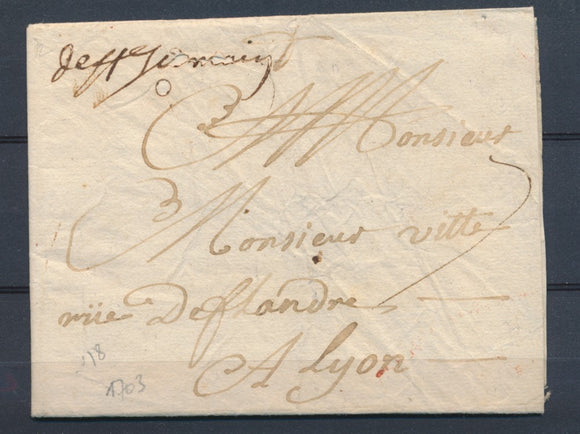 de st Germain
Monsieur
Monsieur vitte
rüe De flandre
A Lyon
118
1703